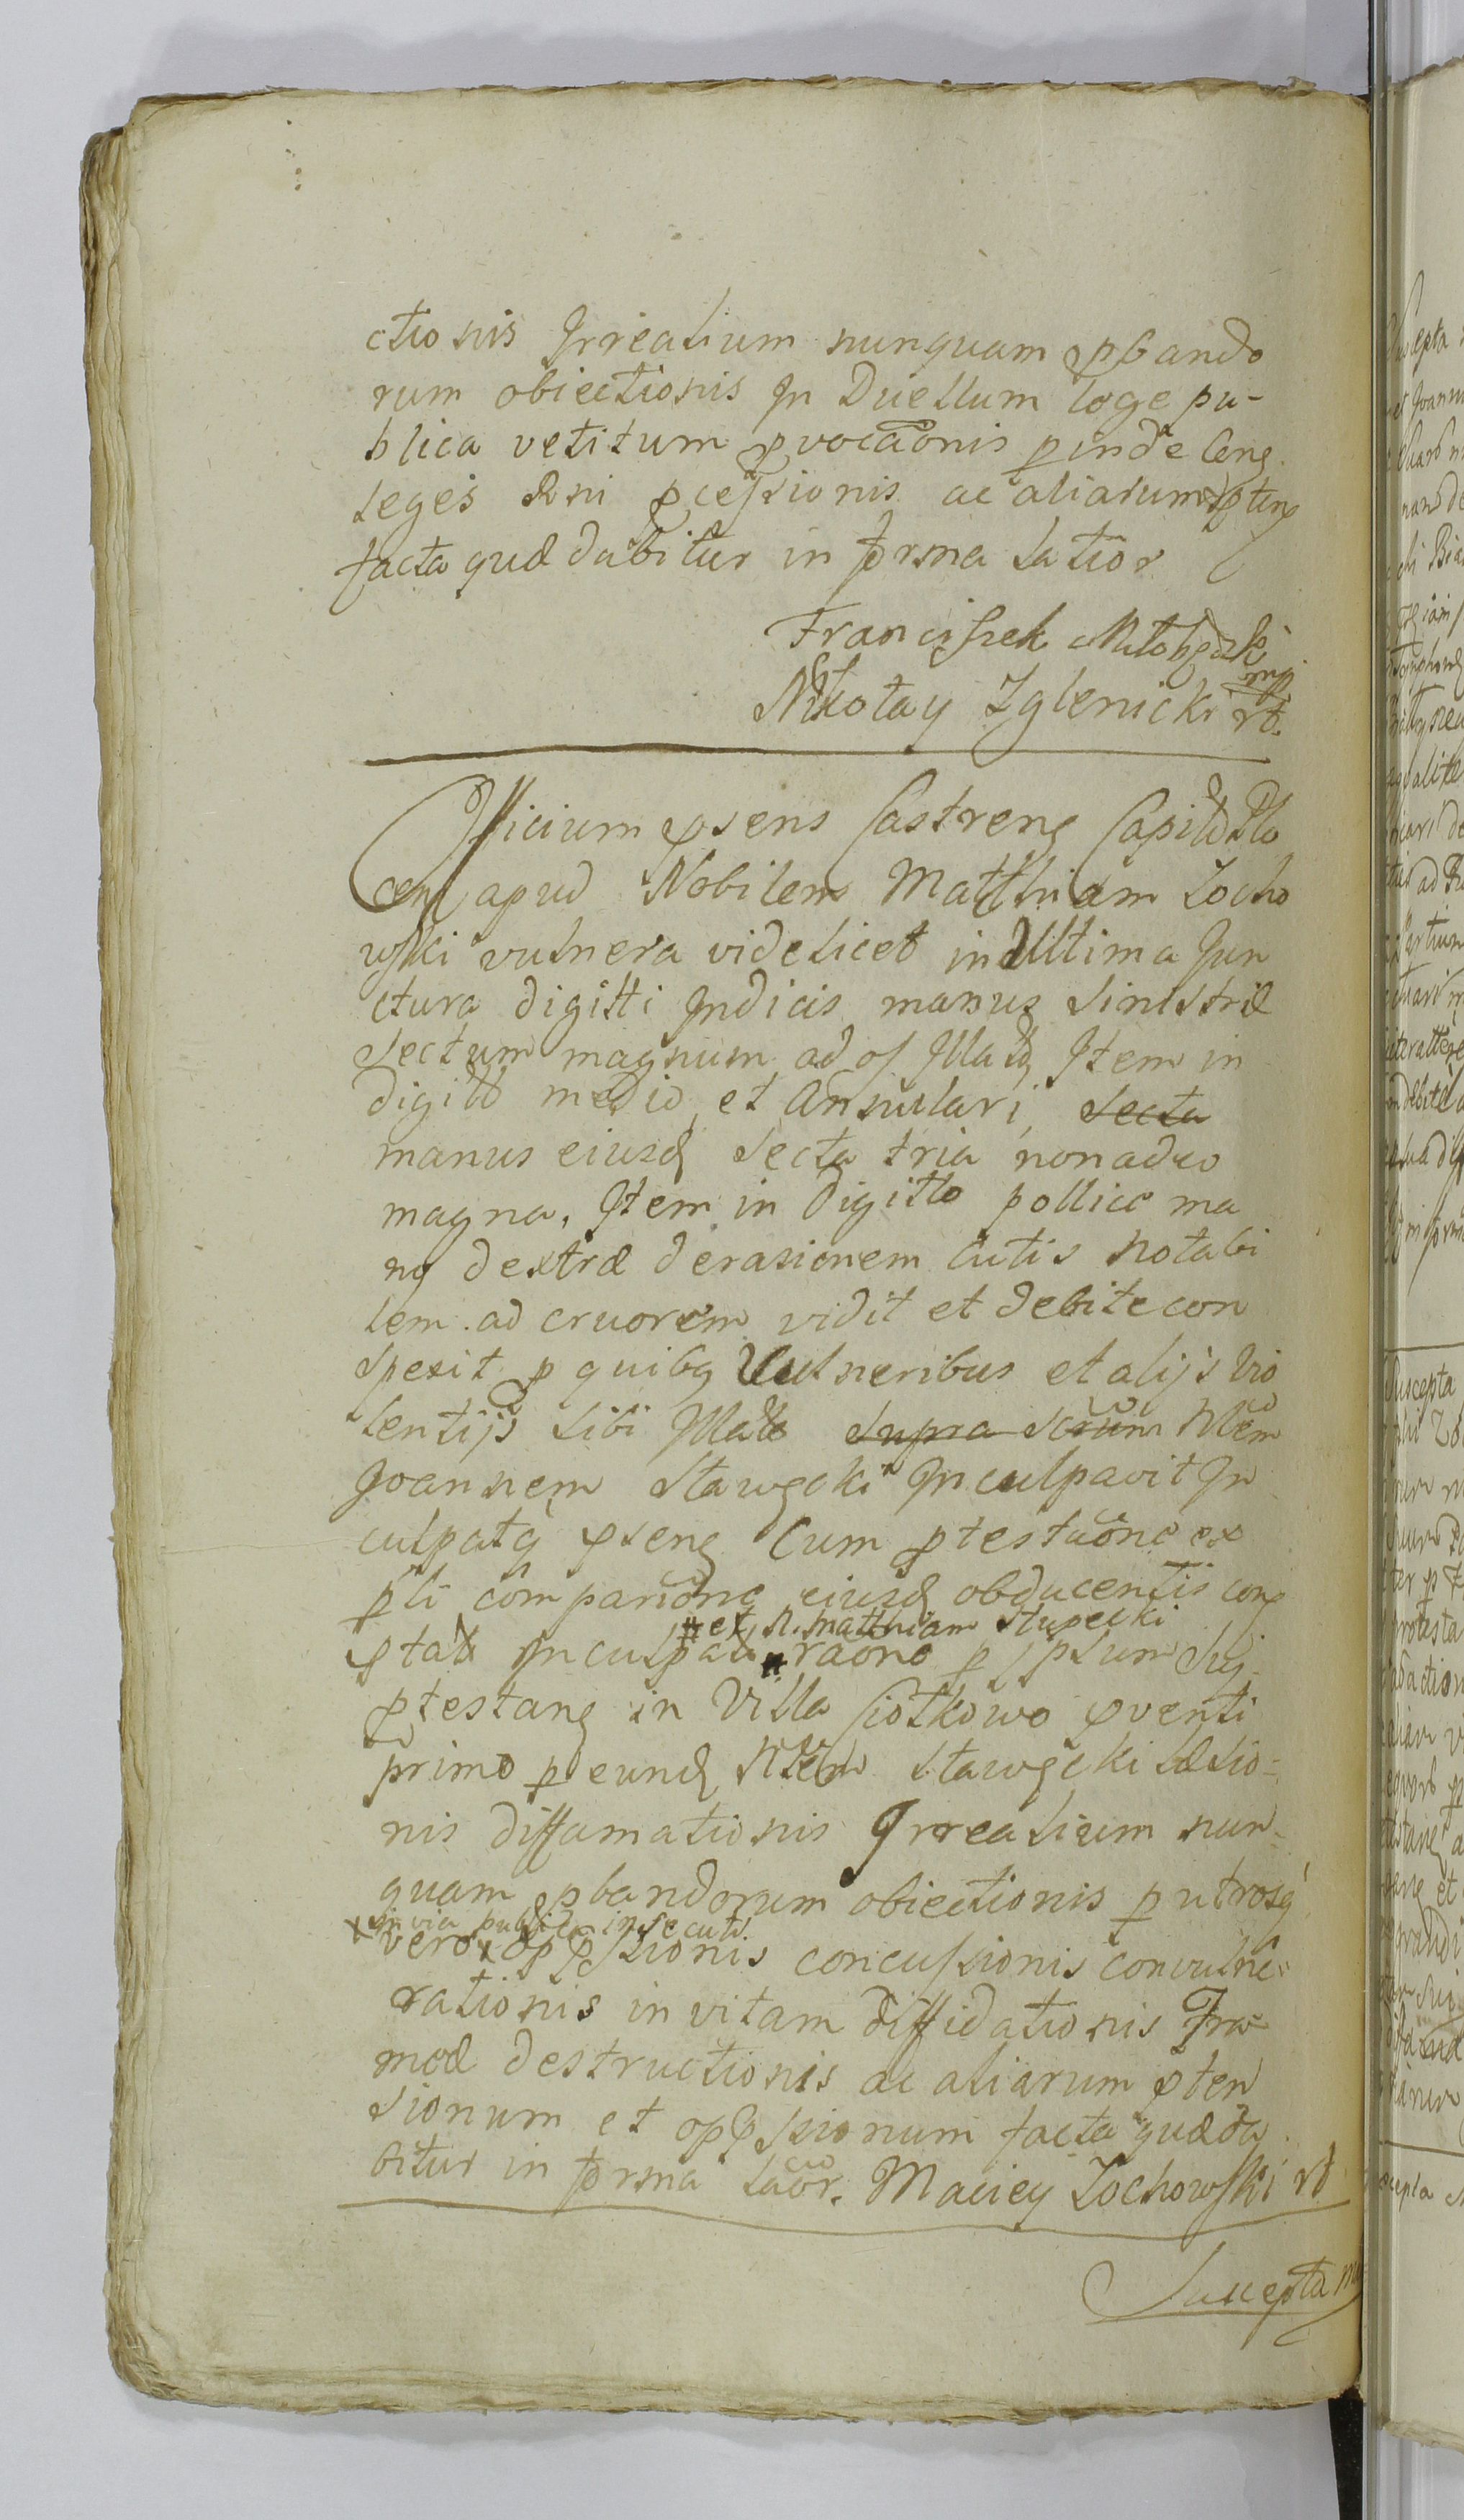 ctionis Irrealium nunquam pbando
rum obiectionis In Duellum lege pu-
blica vetitum pvocaonis pinde Cens
leges Rni pcessionis ac aliarum ptens
facta quæ dabitur in forma latior
Franciszek
mp
Mikołay Zglenicki rđ.
Officium psens Castrens Capitłtto
cens apud Nobilem Matthiam Zocho
wski vulnera videlicet in Ultima Jun
ctura digitti Indicis manus sinistræ
sectum magnum ad os Illatq Item in
digitto medio et Annulari, secta
manus eiusd secta tria non adeo
magna, Item in digitto pollice ma
nq dextræ derasionem cutis notabi
lem ad cruorem vidit et debite con
spexit p quibq Vulneribus et alijs vio
lentijs sibi Illatis supra scrum Nblem
Joannem Stawscki Inculpavit In
culpatq psens Cum ptestaone ex
pti comparione eiusd obducentis cons
# et N. Matthiam Słupecki
ptatt Inculpatt # raone p ipsum Suj
ptestans in Villa Ciołkowo pventi
primo p eund Nblem Stawscki læsio-
nis diffamationis Irrealium nun-
quam pbandorum obiectionis p utrosq
x in via publica insecutt
vero x oppssionis concussionis convulne-
rationis in vitam diffidationis Fa
mæ destructionis ac aliarum pten
sionum et oppssionum facta quæ da
bitur in forma laor. Maciey Zochowski rđ
Suscepta